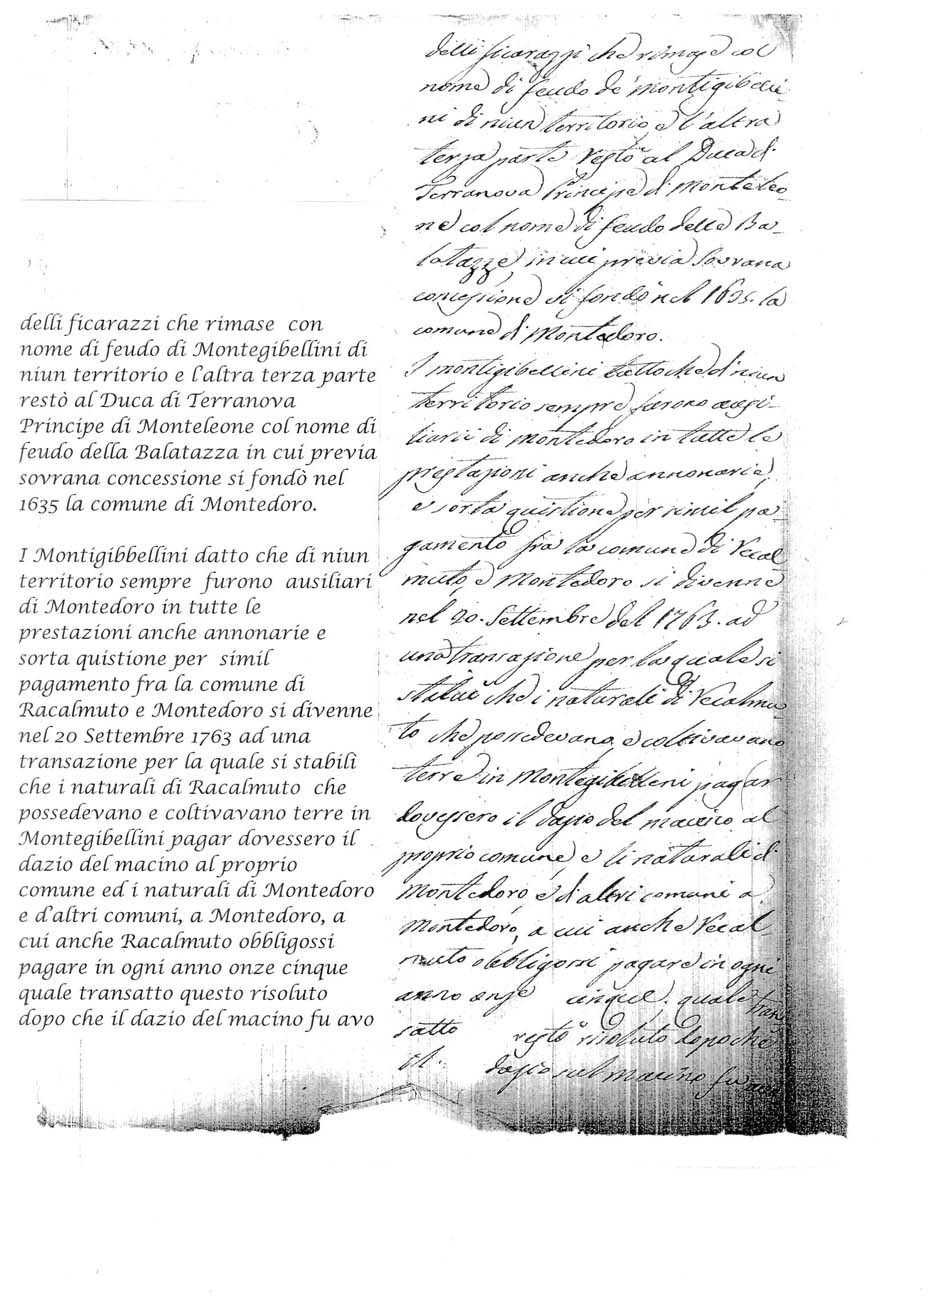 delli ficarazzi che rimase con
nome di feudo di Montegibellini di
niun territorio e l'altra terza parte
restò al Duca di Terranova
Principe di Monteleone col nome di
feudo della Balatazza in cui previa
sovrana concessione si fondò nel
1635 la comune di Montedoro.
I Montigibbellini datto che di niun
territorio sempre furono ausiliari
di Montedoro in tutte le
prestazioni anche annonarie e
sorta quistione per simil
pagamento fra la comune di
Racalmuto e Montedoro si divenne
nel 20 Settembre 1763 ad una
transazione per la quale si stabilì
che i naturali di Racalmuto che
possedevano e coltivavano terre in
Montegibellini pagar dovessero il
dazio del macino al proprio
comune ed i naturali di Montedoro
e d'altri comuni, a Montedoro, a
cui anche Racalmuto obbligossi
pagare in ogni anno onze cinque
quale transatto questo risoluto
dopo che il dazio del macino fu avo
delli ficarazzi che rimase col
nome di feudo de' montigibelli-
ni di niun territorio e l'altra
terza parte restò al Duca di
Terranova Principe di Monteleo-
ne col nome di feudo delle Ba-
latazze, in cui previa Sovrana
concessione si fondò nel 1635. la
comune di Montedoro.
I montigibellini tuttoche di niun
territorio sempre furono ausi-
liarii di Montedoro in tutte le
prestazioni anche annonarie,
e sorta quistione per simil pa-
gamento fra la comune di Recal
muto, e Montedoro si divenne
nel 20. Settembre del 1763. ad
una transazione per la quale si
statuì che i naturali di Recalmu-
to che possedevano, e coltivavano
terre in Montegibellini pagar
dovessero il dazio del macino al
proprio comune, e li naturali di
Montedoro, e d'altri comuni a
Montedoro, a cui anche Recal-
muto obbligossi pagare in ogni
anno onze cinque. quale tran
satto restò risoluto dopo che
il dazio sul macino fu